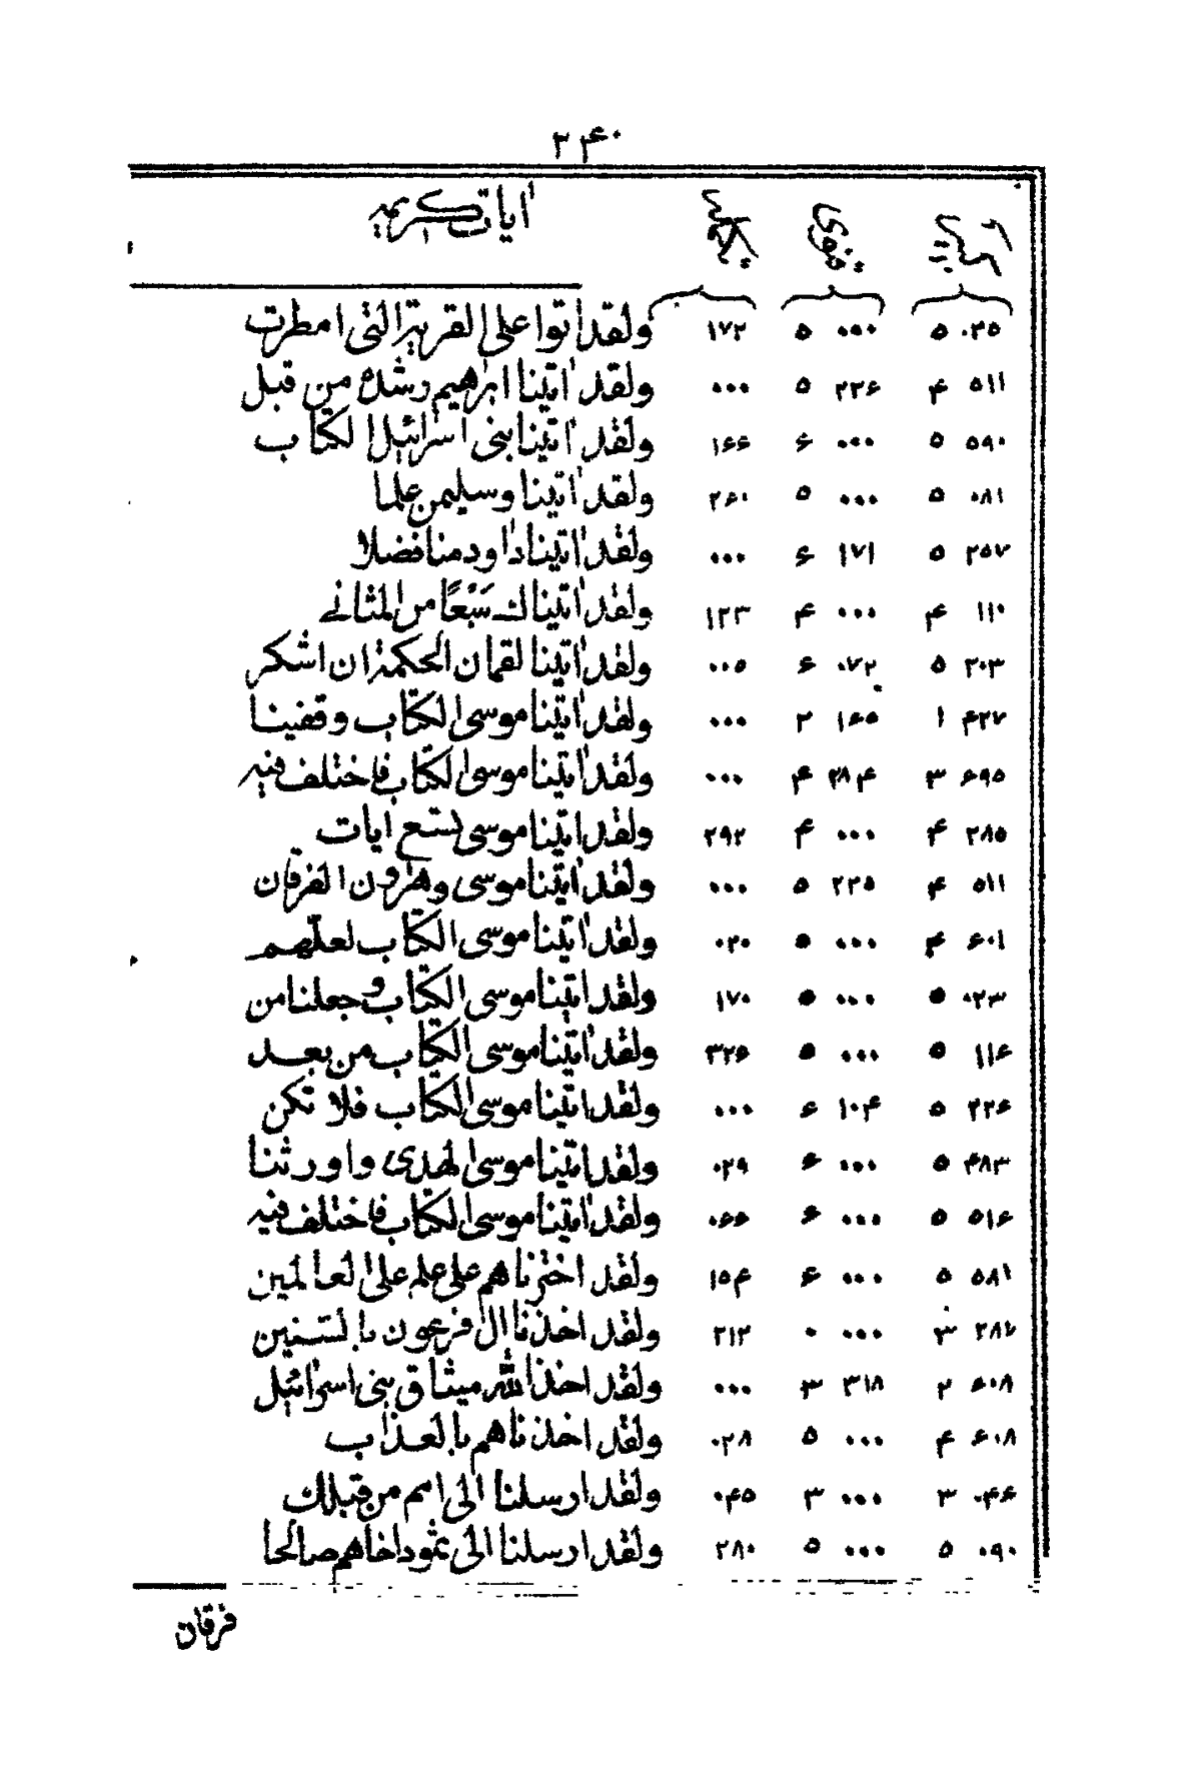 ۲۴۰
اٰيات كريمه
۰۲۵ ۵ ۰۰۰ ۵ ۱۷۲ ولقد اتوا على القرية التى امطرت
۵۱۱ ۴ ۲۲۶ ۵ ۰۰۰ ولقد اٰتينا ابرٰهيم رشده من قبل
۵۹۰ ۵ ۰۰۰ ۶ ۱۶۶ ولقد اٰتينا بنى اسرائيل الكتاب
۰۸۱ ۵ ۰۰۰ ۵ ۲۶۰ ولقد اٰتينا وسليمن علما
۲۵۷ ۵ ۱۷۱ ۶ ۰۰۰ ولقد اٰتينا داود منا فضلا
۱۱۰ ۴ ۰۰۰ ۴ ۱۲۳ ولقد اٰتيناك سَبْعًا من المثانے
۲۰۳ ۵ ۰۷۲ ۶ ۰۰۵ ولقد اٰتينا لقمان الحكمة ان اشكر
۶۲۷ ۱ ۱۶۵ ۲ ۰۰۰ ولقد اٰتينا موسى الكتاب وقفينا
۶۹۵ ۳ ۲۸۴ ۴ ۰۰۰ ولقد اٰتينا موسى الكتاب فاختلف فيه
۲۸۵ ۴ ۰۰۰ ۴ ۲۹۲ ولقد اٰتينا موسى تسع اٰيات
۵۱۱ ۴ ۲۲۵ ۵ ۰۰۰ ولقد اٰتينا موسى وهٰرون الفرقان
۶۰۱ ۴ ۰۰۰ ۵ ۰۲۰ ولقد اٰتينا موسى الكتاب لعلّهم
۰۲۳ ۵ ۰۰۰ ۵ ۱۷۰ ولقد اٰتينا موسى الكتاب و جعلنا من
۱۱۶ ۵ ۰۰۰ ۵ ۳۲۶ ولقد اٰتينا موسى الكتاب من بعد
۲۲۶ ۵ ۱۰۴ ۶ ۰۰۰ ولقد اٰتينا موسى الكتاب فلا تكن
۴۸۳ ۵ ۰۰۰ ۶ ۰۲۹ ولقد اٰتينا موسى الهدى واورثنا
۵۱۶ ۵ ۰۰۰ ۶ ۰۶۶ ولقد اٰتينا موسى الكتاب فاختلف فيه
۵۸۱ ۵ ۰۰۰ ۶ ۱۵۴ ولقد اخترناهم على علم على العالمين
۲۸۷ ۳ ۰۰۰ ۰ ۲۱۲ ولقد اخذنا اٰل فرعون بالسنين
۶۰۸ ۲ ۳۱۸ ۳ ۰۰۰ ولقد اخذ الله ميثاق بنى اسرائيل
۶۰۸ ۴ ۰۰۰ ۵ ۰۲۸ ولقد اخذناهم بالعذاب
۰۴۶ ۳ ۰۰۰ ۳ ۰۴۵ ولقد ارسلنا الى امم من قبلك
۰۹۰ ۵ ۰۰۰ ۵ ۲۸۰ ولقد ارسلنا الى ثمود اخاهم صالحا
فرقان